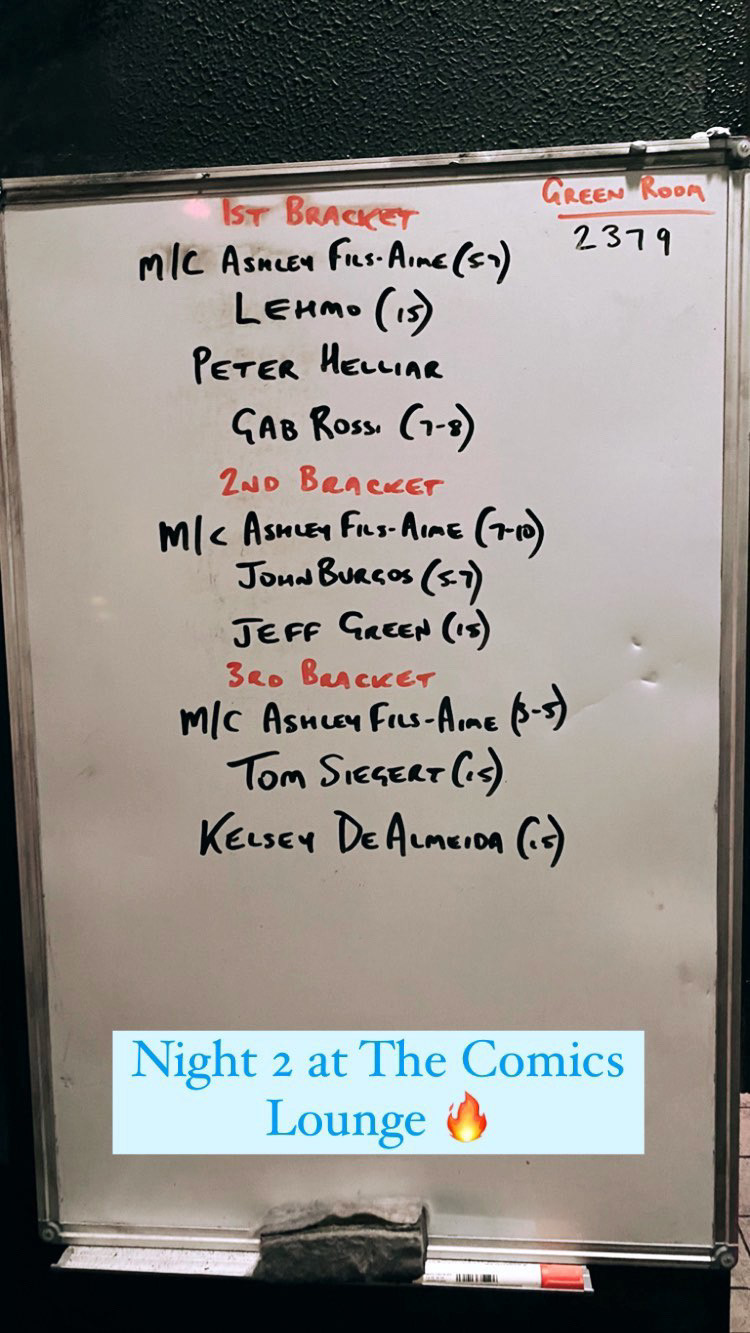 1ST BRACKET
GREEN ROOM
2379
M/C ASHLEY FILS-AIME (5-7)
LEHMO (15)
PETER HELLIAR
GAB ROSSI (7-8)
2ND BRACKET
M/C ASHLEY FILS-AIME (7-10)
JOHN BURGOS (5-7)
JEFF GREEN (15)
3RD BRACKET
M/C ASHLEY FILS-AIME (3-5)
TOM SIEGERT (15)
KELSEY DE ALMEIDA (15)
Night 2 at The Comics
Lounge 🔥